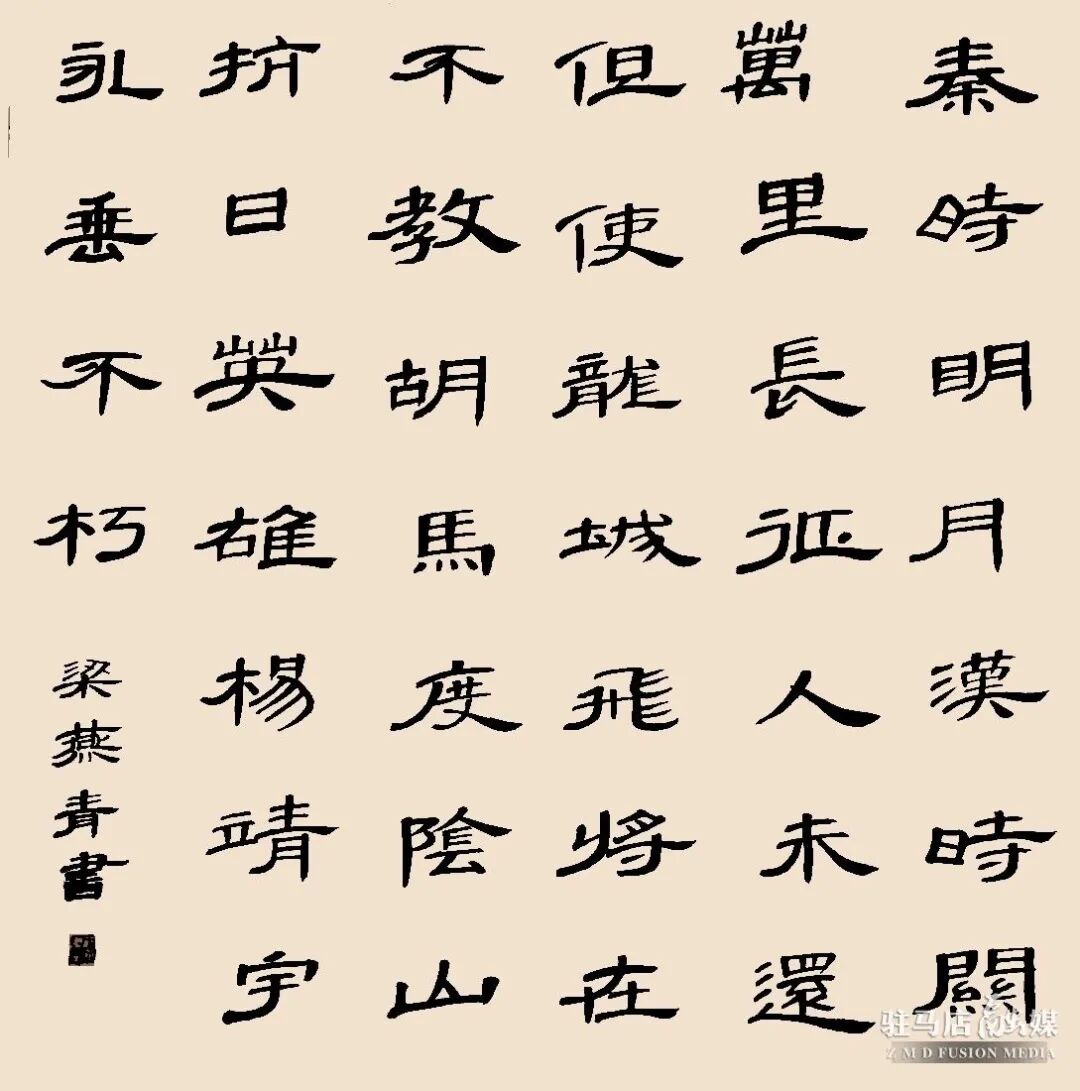 秦時明月漢時關
萬里長征人未還
但使龍城飛將在
不教胡馬度陰山
抗日英雄楊靖宇
永垂不朽
梁燕青書
驻马店融媒
ZMD FUSION MEDIA